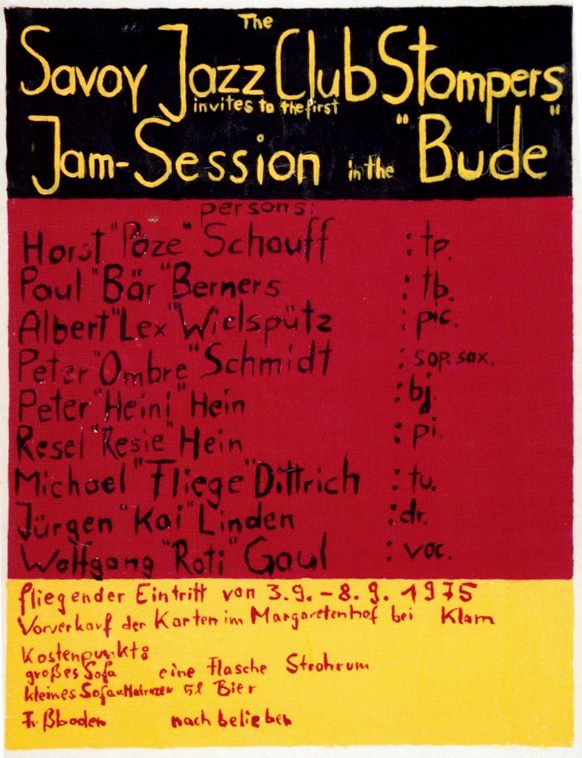 The
Savoy Jazz Club Stompers
invites to the first
Jam-Session in the "Bude"
persons:
Horst "Poze" Schauff : tp.
Paul "Bär" Berners : tb.
Albert "Lex" Wielspütz : pic.
Peter "Ombre" Schmidt : sop. sax.
Peter "Heini" Hein : bj.
Resel "Resie" Hein : pi.
Michael "Fliege" Dittrich : tu.
Jürgen "Kai" Linden : dr.
Wolfgang "Roti" Gaul : voc.
fliegender Eintritt von 3.9. – 8.9. 1975
Vorverkauf der Karten im Margaretenhof bei Klam
Kostenpunkt:
großes Sofa eine Flasche Strohrum
kleines Sofa u. Matrazen 5l Bier
Fußboden nach belieben